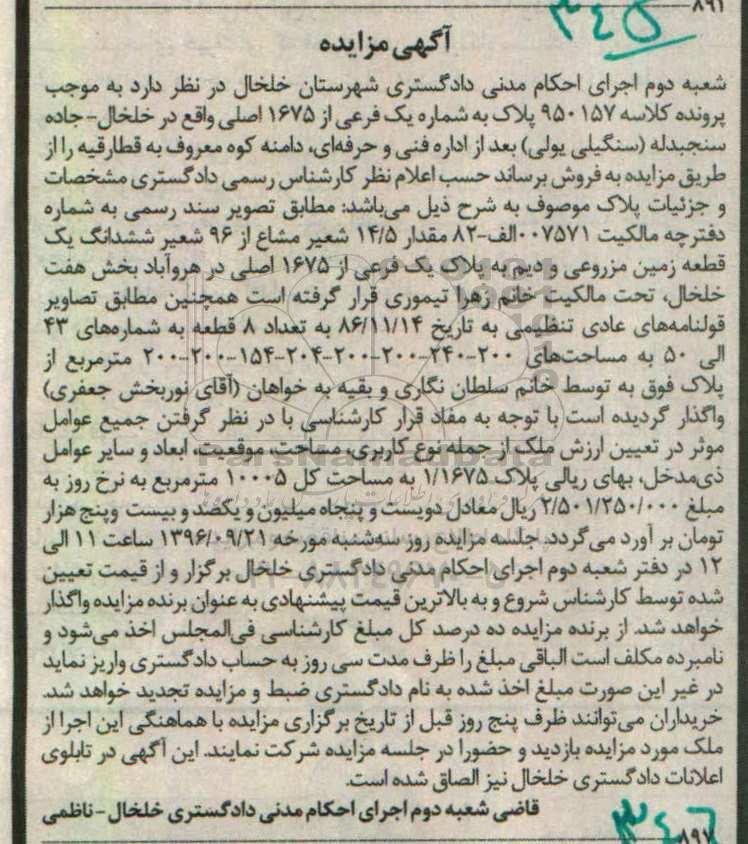 ۸۹۱
۳۴۵
آگهی مزایده
شعبه دوم اجرای احکام مدنی دادگستری شهرستان خلخال در نظر دارد به موجب
پرونده کلاسه ۹۵۰۱۵۷ پلاک به شماره یک فرعی از ۱۶۷۵ اصلی واقع در خلخال-جاده
سنجبدله (سنگیلی یولی) بعد از اداره فنی و حرفه‌ای، دامنه کوه معروف به قطارقیه را از
طریق مزایده به فروش برساند حسب اعلام نظر کارشناس رسمی دادگستری مشخصات
و جزئیات پلاک موصوف به شرح ذیل می‌باشد: مطابق تصویر سند رسمی به شماره
دفترچه مالکیت ۰۰۷۵۷۱الف-۸۲ مقدار ۱۴/۵ شعیر مشاع از ۹۶ شعیر ششدانگ یک
قطعه زمین مزروعی و دیم به پلاک یک فرعی از ۱۶۷۵ اصلی در هروآباد بخش هفت
خلخال، تحت مالکیت خانم زهرا تیموری قرار گرفته است همچنین مطابق تصاویر
قولنامه‌های عادی تنظیمی به تاریخ ۸۶/۱۱/۱۴ به تعداد ۸ قطعه به شماره‌های ۴۳
الی ۵۰ به مساحت‌های ۲۰۰-۲۴۰-۲۰۰-۲۰۰-۲۰۴-۱۵۴-۲۰۰-۲۰۰ مترمربع از
پلاک فوق به توسط خانم سلطان نگاری و بقیه به خواهان (آقای نوربخش جعفری)
واگذار گردیده است با توجه به مفاد قرار کارشناسی با در نظر گرفتن جمیع عوامل
موثر در تعیین ارزش ملک از جمله نوع کاربری، مساحت، موقعیت، ابعاد و سایر عوامل
ذی‌مدخل، بهای ریالی پلاک ۱/۱۶۷۵ به مساحت کل ۱۰۰۰۵ مترمربع به نرخ روز به
مبلغ ۲/۵۰۱/۲۵۰/۰۰۰ ریال معادل دویست و پنجاه میلیون و یکصد و بیست وپنج هزار
تومان بر آورد می‌گردد. جلسه مزایده روز سه‌شنبه مورخه ۱۳۹۶/۰۹/۲۱ ساعت ۱۱ الی
۱۲ در دفتر شعبه دوم اجرای احکام مدنی دادگستری خلخال برگزار و از قیمت تعیین
شده توسط کارشناس شروع و به بالاترین قیمت پیشنهادی به عنوان برنده مزایده واگذار
خواهد شد. از برنده مزایده ده درصد کل مبلغ کارشناسی فی‌المجلس اخذ می‌شود و
نامبرده مکلف است الباقی مبلغ را ظرف مدت سی روز به حساب دادگستری واریز نماید
در غیر این صورت مبلغ اخذ شده به نام دادگستری ضبط و مزایده تجدید خواهد شد.
خریداران می‌توانند ظرف پنج روز قبل از تاریخ برگزاری مزایده با هماهنگی این اجرا از
ملک مورد مزایده بازدید و حضورا در جلسه مزایده شرکت نمایند. این آگهی در تابلوی
اعلانات دادگستری خلخال نیز الصاق شده است.
قاضی شعبه دوم اجرای احکام مدنی دادگستری خلخال-ناظمی
۳۴۶
۸۹۷